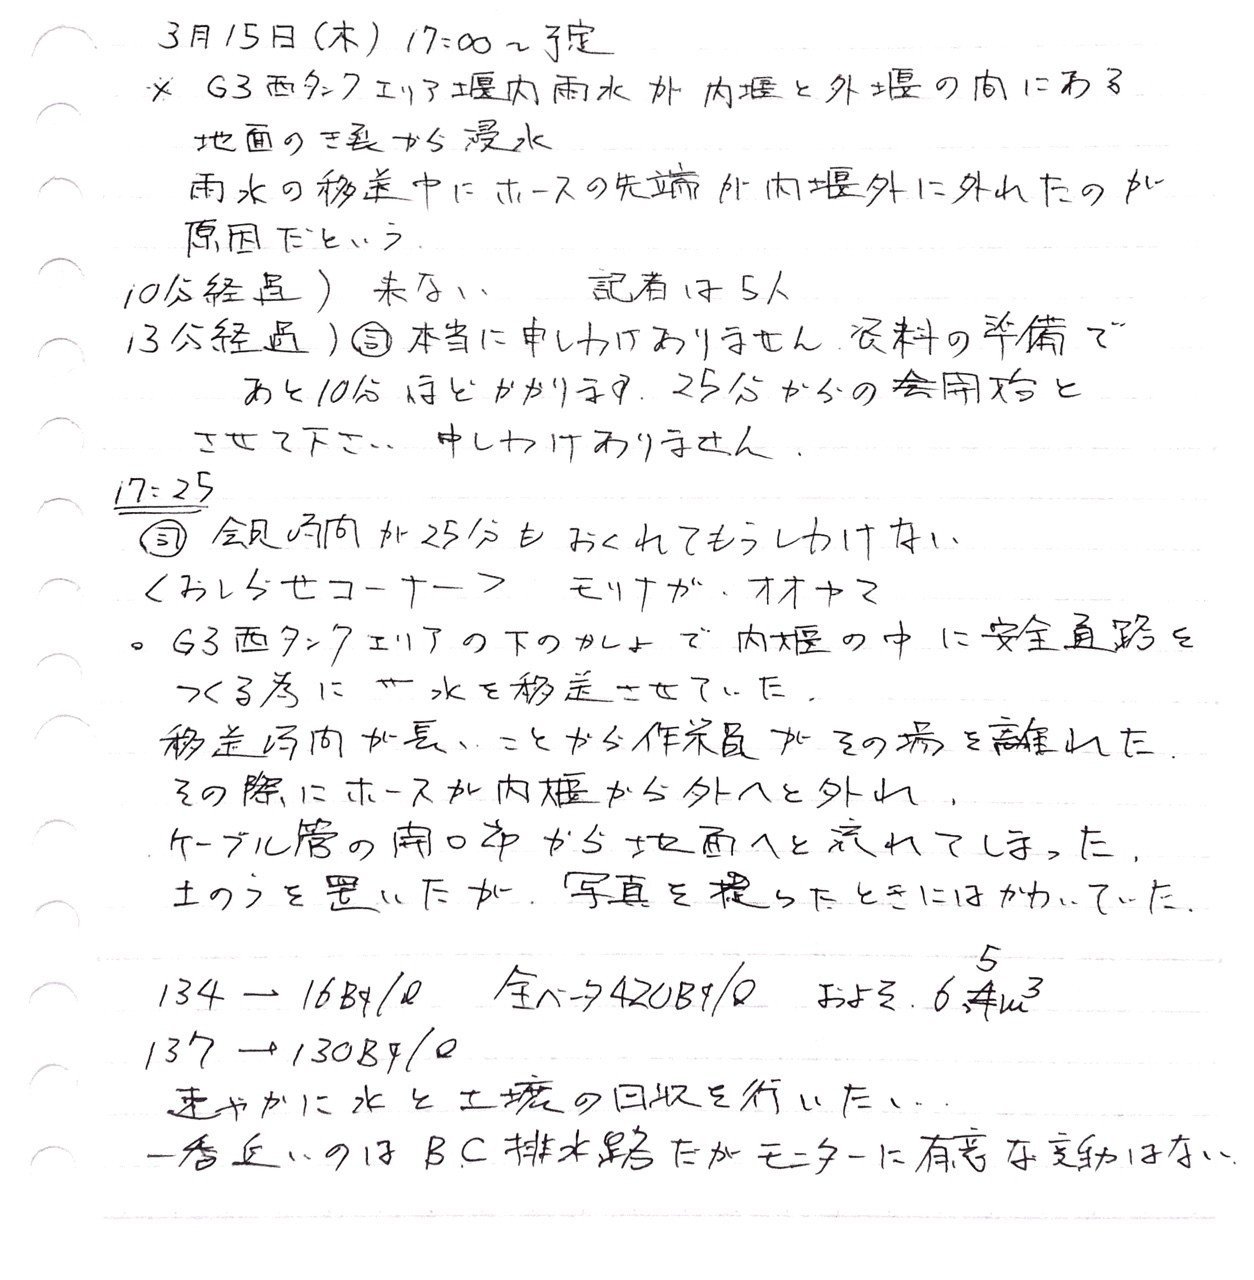 3月15日(木) 17:00～予定
※ G3西タンクエリア堰内雨水が内堰と外堰の間にある
地面のき裂から浸水
雨水の移送中にホースの先端が内堰外に外れたのが
原因だという.
10分経過) 来ない 記者は5人
13分経過) 司 本当に申しわけありません.資料の準備で
あと10分ほどかかります.25分からの会開始と
させて下さい 申しわけありません.
17:25
司 会見時間が25分もおくれてもうしわけない
<おしらせコーナー> モリナガ・オオヤマ
○ G3西タンクエリアの下のかしょで内堰の中に安全通路を
つくる為に 水を移送させていた.
移送時間が長いことから作業員がその場を離れた.
その際にホースが内堰から外へと外れ,
ケーブル管の開口部から地面へと流れてしまった.
土のうを置いたが.写真を撮ったときにはかわいていた.
134→16Bq/ℓ 全ベータ420Bq/ℓ およそ.6.5m³
137→130Bq/ℓ
速やかに水と土壌の回収を行いたい..
一番近いのはBC排水路だがモニターに有意な変動はない.